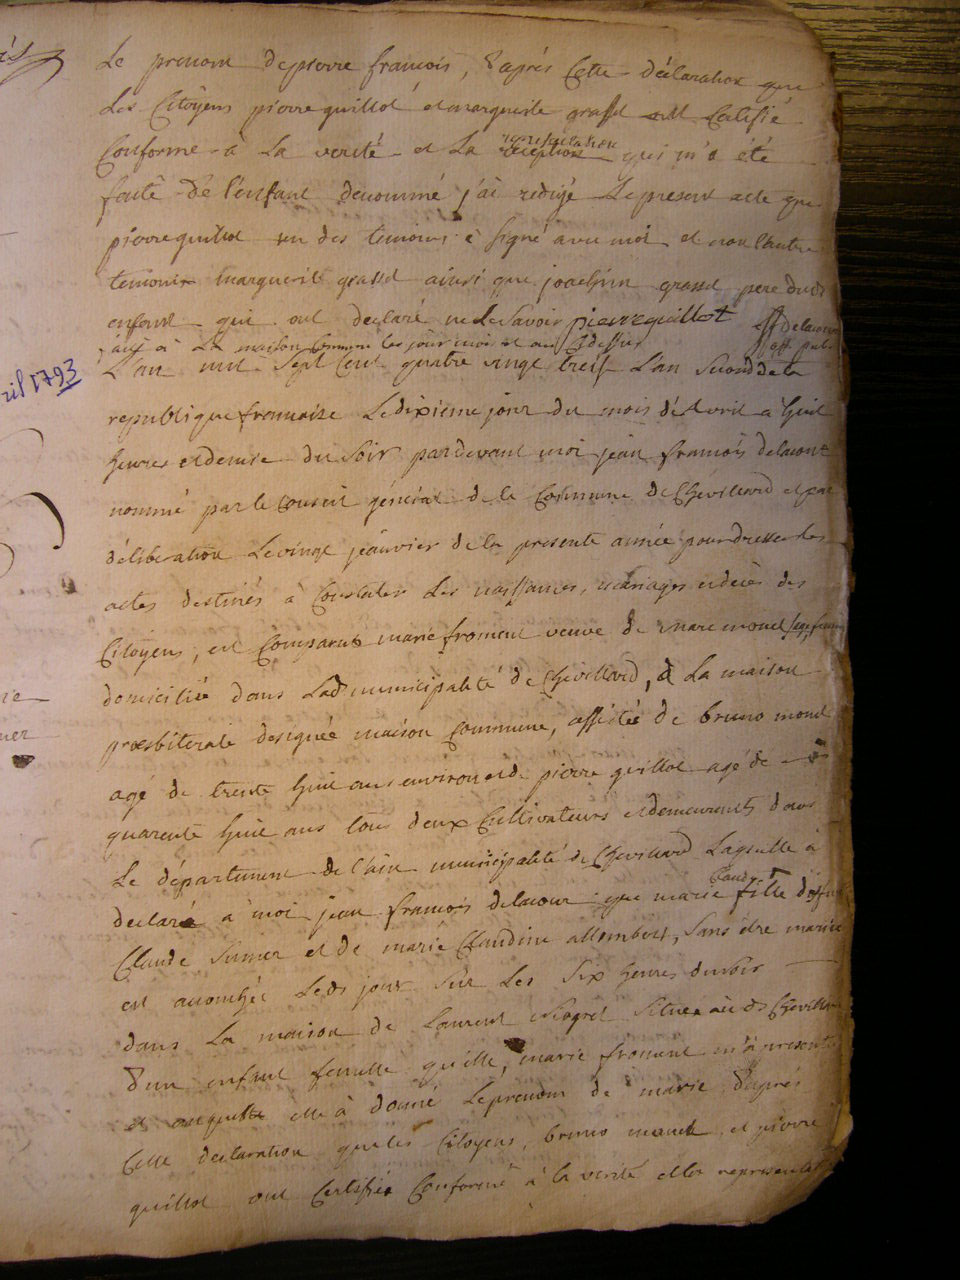 Le prenom de pierre francois, d'après Cette déclaration que
Les Citoyens pierre quillot et marguerite grassd ont Certifié
Conforme à La verité et La representation qui m'a été
faite de l'enfant denommé j'ai redigé Le present acte que
pierre quillot un des temoins à signé avec moi et non l'autre
temoin marguerite grassd ainsi que joachim grassd pere dudt
enfant qui ont declaré ne Le savoir pierre quillot jff delacour
fait à La maison Commune Les jour mois et an Cydessus off. pub.
ril 1793
L'an mil Sept Cent quatre vingt treise L'an Second de la
republique francaise Le dixieme jour du mois d'Avril à huit
heures et demie du Soir pardevant moi jean francois delacour
nommé par le Conseil général de la Commune de Chevillard et par
déliberation Le vingt janvier de la presente année pour dresser les
actes destinés à Constater Les naissances, mariages et decès des
Citoyens, est Comparue marie froment veuve de marc monet sage femme
domiciliée dans Ladt municipalité de Chevillard, à La maison
presbiterale designée maison Commune, assistée de bruno monet
agé de trente huit ans environ et de pierre quillot agé de
quarente huit ans tous deux Cultivateurs et demeurents dans
Le département de l'ain municipalité de Chevillard Laquelle à
declaré à moi jean francois delacour que marie Claud. fille de feu
Claude Sumer et de marie Claudine allombert, sans être mariée
est accouchée Ledt jour sur Les Six heures du soir
dans La maison de Laurent située audt Chevillard
d'un enfant femelle qu'elle, marie froment m'à presenté
et auquelle elle à donné Le prenom de marie, d'après
Cette declaration que les Citoyens, bruno monet et pierre
quillot ont Certifiée Conforme à la verité et la representat